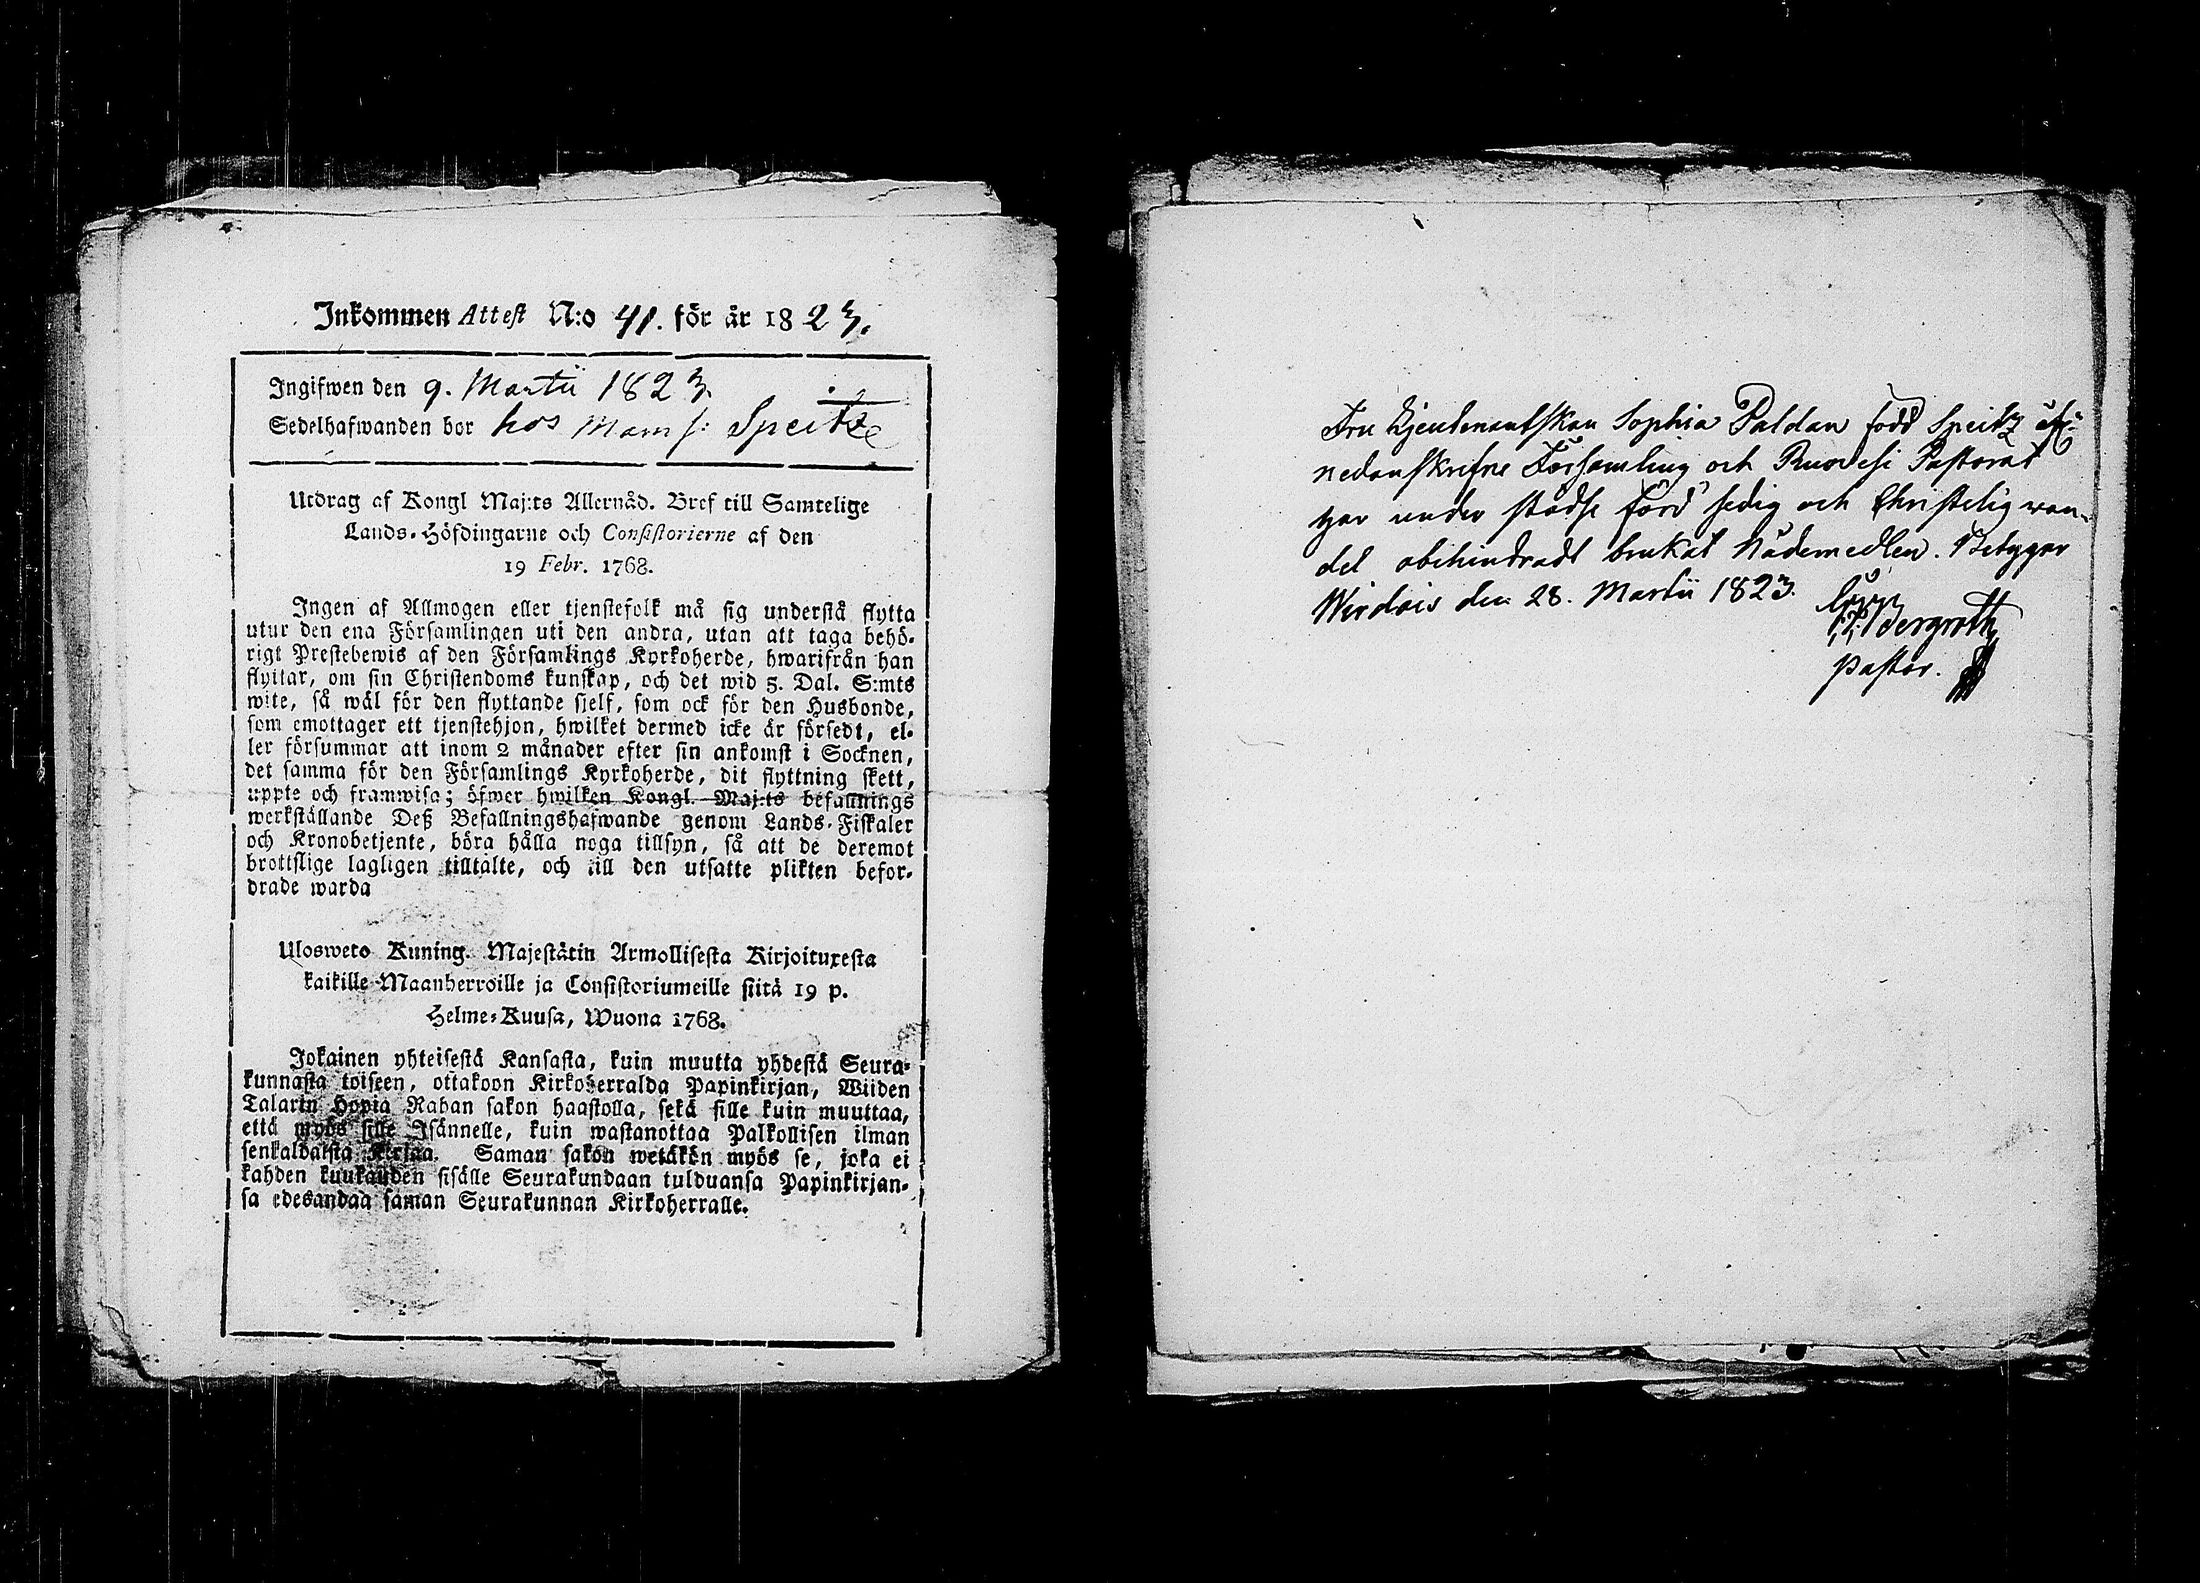 Inkommen Attest N:o 41. för år 1823.
Ingifwen den 9. Martii 1823.
Sedelhafwanden bor hos Mamſ: Speitz
Utdrag af Kongl Maj:ts Allernåd. Bref till Samtelige
Lands-Höfdingarne och Conſiſtorierne af den
19 Febr. 1768.
Ingen af Allmogen eller tjenſtefolk må ſig underſtå flytta
utur den ena Förſamlingen uti den andra, utan att taga behö-
rigt Preſtebewis af den Förſamlings Kyrkoherde, hwarifrån han
flyttar, om ſin Chriſtendoms kunſkap, och det wid 5. Dal. S:mts
wite, ſå wäl för den flyttande ſjelf, ſom ock för den Husbonde,
ſom emottager ett tjenſtehjon, hwilket dermed icke är förſedt, el-
ler förſummar att inom 2 månader efter ſin ankomſt i Socknen,
det ſamma för den Förſamlings Kyrkoherde, dit flyttning ſkett,
uppte och framwiſa; öfwer hwilken Kongl. Maj:ts befallnings
werkſtällande Deß Befallningshafwande genom Lands-Fiſkaler
och Kronobetjente, böra hålla noga tillſyn, ſå att de deremot
brottſlige lagligen tilltalte, och till den utſatte plikten befor-
drade warda
Ulosweto Kuning. Majeſtätin Armolliſeſta Kirjoituxeſta
kaikille Maanherroille ja Conſiſtoriumeille ſiitä 19 p.
Helme-Kuuſa, Wuona 1768.
Jokainen yhteiſeſtä Kanſaſta, kuin muutta yhdeſtä Seura-
kunnaſta toiſeen, ottakoon Kirkoherralda Papinkirjan, Wiiden
Talarin Hopia Rahan ſakon haaſtolla, ſekä ſille kuin muuttaa,
että myös ſille Iſännelle, kuin waſtanottaa Palkolliſen ilman
ſenkaldaiſta Kirjaa. Saman ſakon wetäkön myös ſe, joka ei
kahden kuukauden ſiſälle Seurakundaan tulduanſa Papinkirjan-
ſa edesandaa ſaman Seurakunnan Kirkoherralle.
Fru Ljeutenantſkan Sophia Paldan född Speitz
nedanſkrefne Förſamling och Ruoveſi Paſtorat
har under ſtädſe förd ſedig och Chriſtelig wan-
del obehindradt brukat Nådemedlen. Betygar
Wirdois den 28. Martii 1823.
Bergroth
Paſtor.